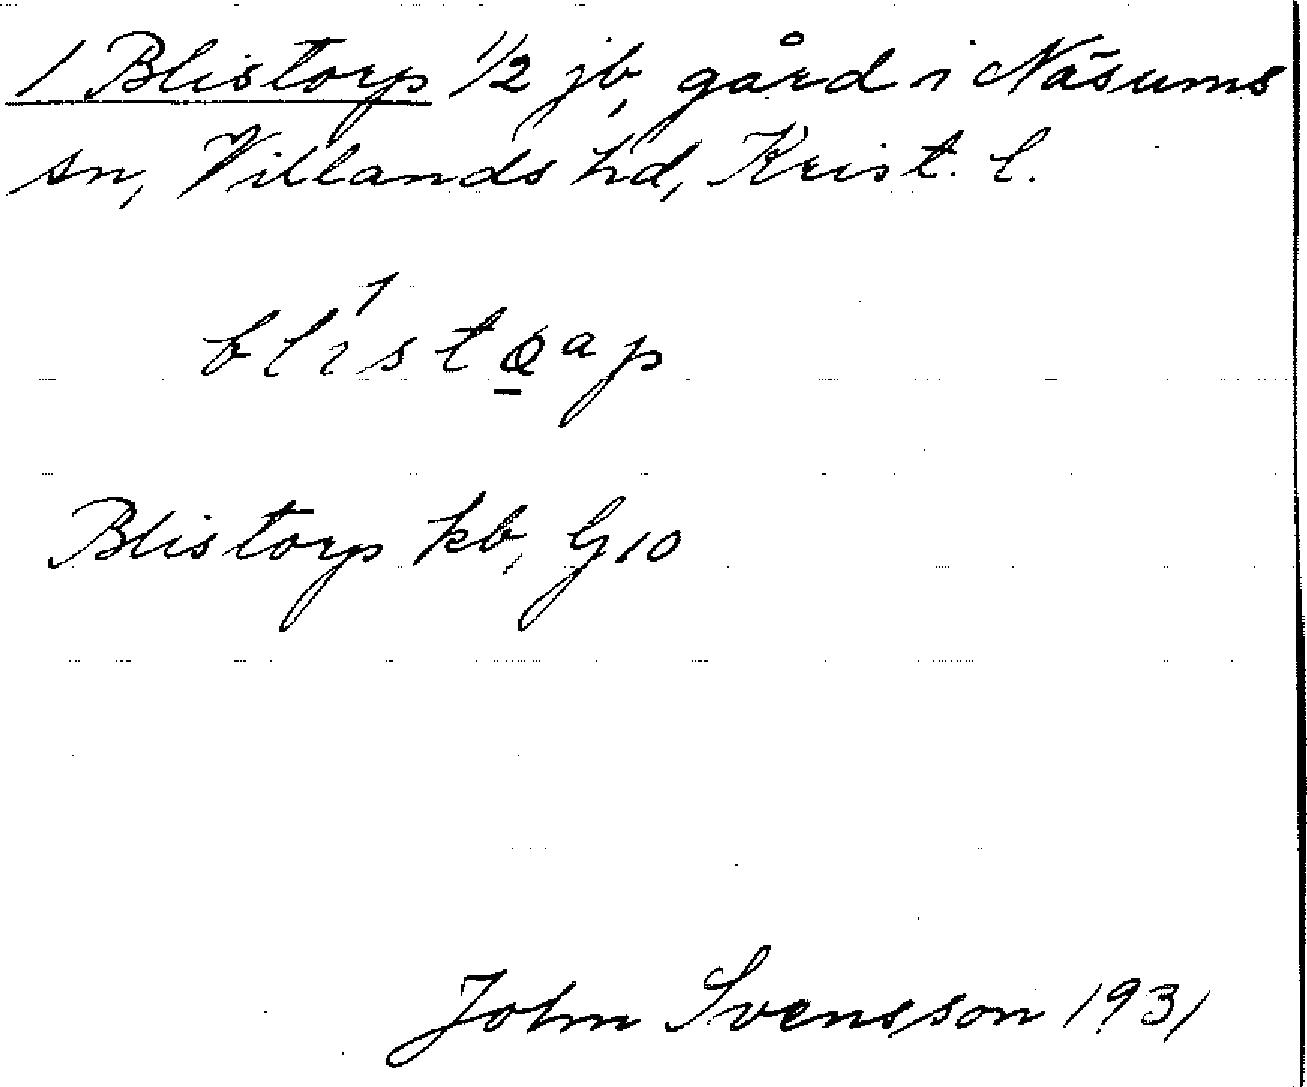 1 Blistorp 1/2 jb, gård i Näsums
sn, Villands hd, Krist. l.
Blistorp kb, G10
John Svensson 1931